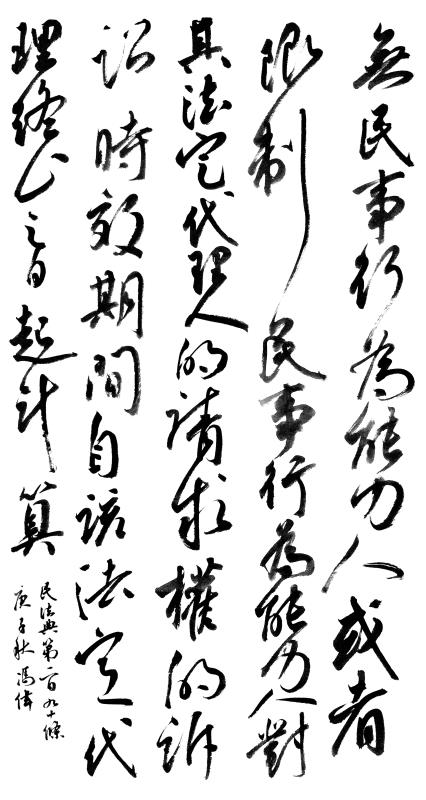 無民事行為能力人或者
限制民事行為能力人對
其法定代理人的請求權的訴
訟時效期間自該法定代
理終止之日起計算
民法典第一百九十條
庚子秋馮偉